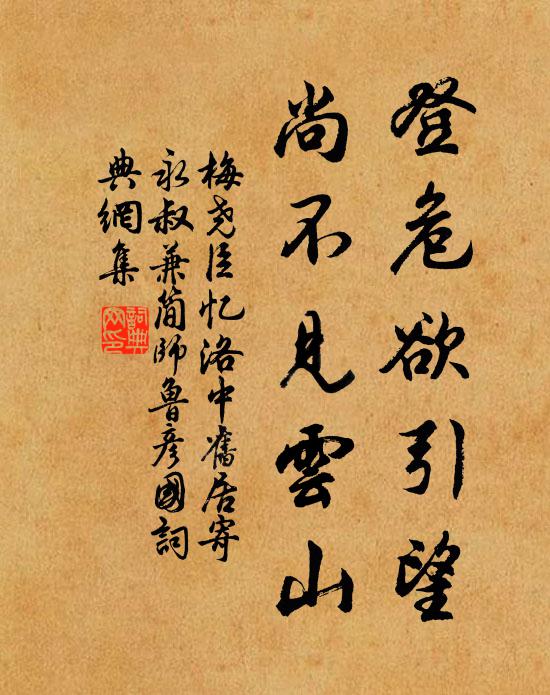 登危欲引望
尚不見雲山
梅尧臣忆洛中舊居寄
永叔兼簡師魯彦國詞
典網集
詞典網印